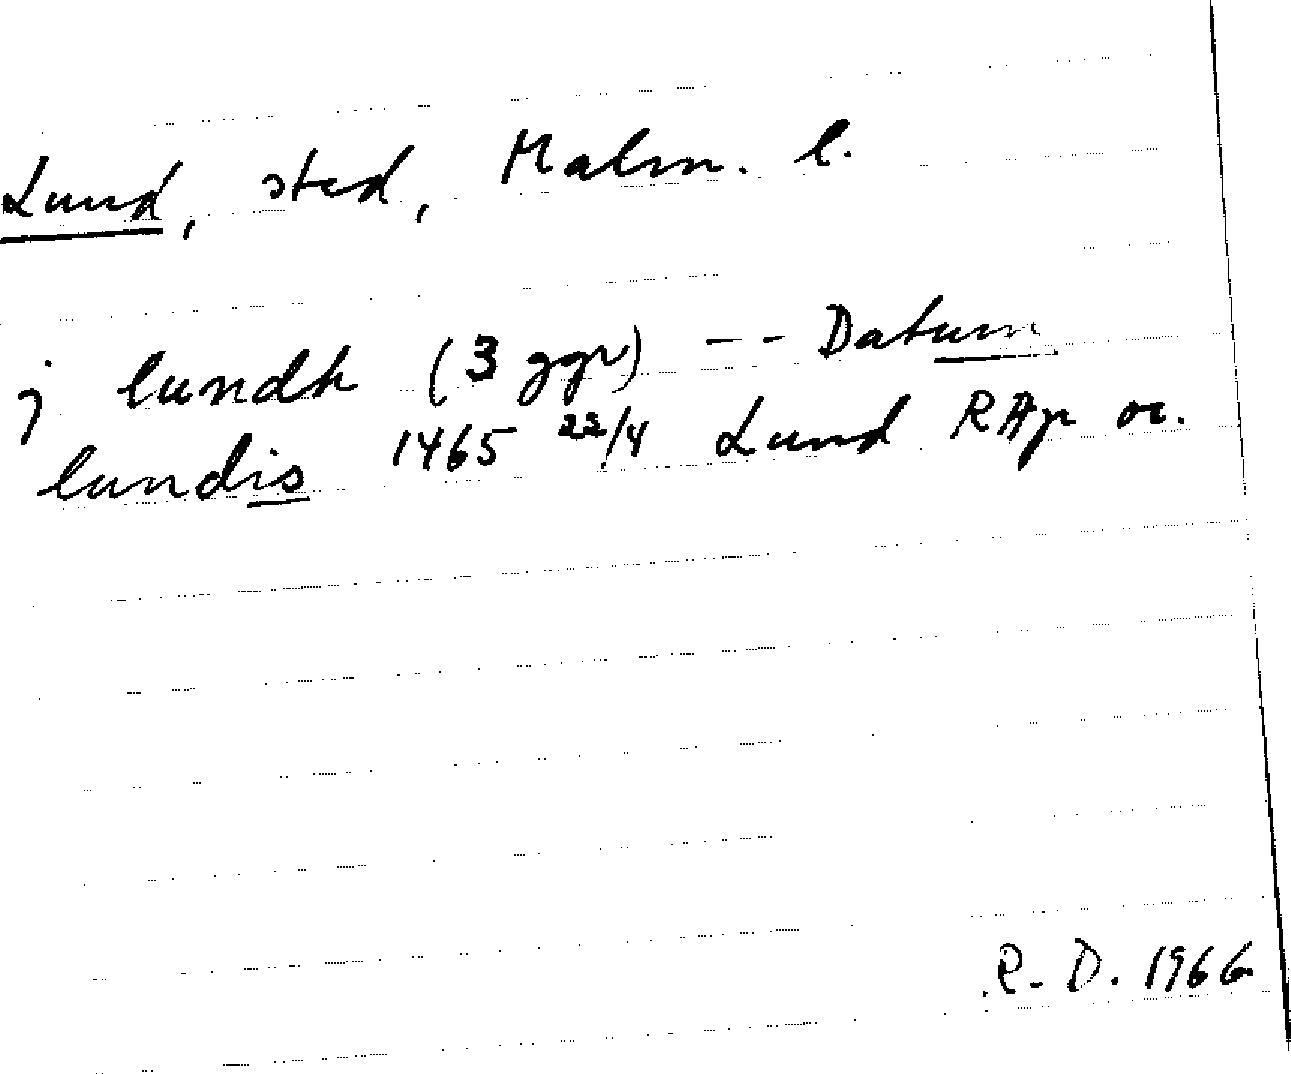 Lund, stad, Malm. l.
j lundh (3 ggr) -- Datum
lundis 1465 22/4 Lund RAp or.
R-D. 1966